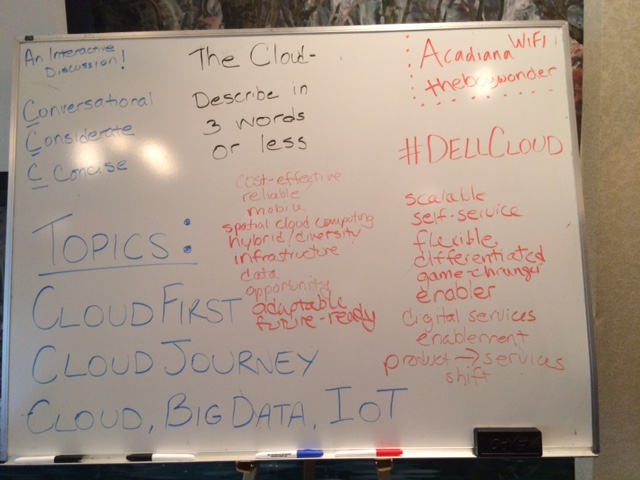 An Interactive
Discussion!
Conversational
Considerate
C Concise
The Cloud-
Describe in
3 words
or less
WIFI
Acadiana
theboywonder
#DELLCLOUD
cost-effective
reliable
mobile
spatial cloud computing
hybrid/diversity
infrastructure
data
opportunity
adaptable
future-ready
scalable
self-service
flexible
differentiated
game-changer
enabler
digital services
enablement
product → services
shift
TOPICS:
CLOUD FIRST
CLOUD JOURNEY
CLOUD, BIG DATA, IOT